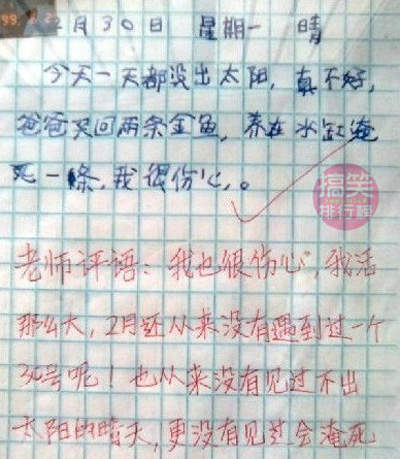 2月30日 星期一 晴
今天一天都没出太阳,真不好,
爸爸买回两条金鱼,养在水缸淹
死一条,我很伤心。
搞笑
排行榜
老师评语:我也很伤心,我活
那么大,2月还从来没有遇到过一个
30号呢!也从来没有见过不出
太阳的晴天,更没有见过会淹死